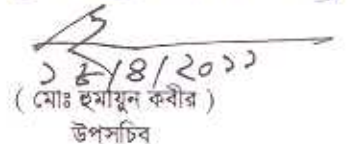 ১৪/৪/২০১১
( মোঃ হুমায়ুন কবীর )
উপসচিব